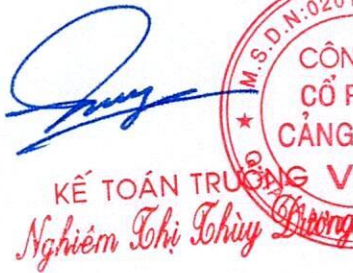 M.S.D.N:020
CÔN
CỔ P
CẢNG
V
KẾ TOÁN TRƯỞNG
Nghiêm Thị Thùy Dương